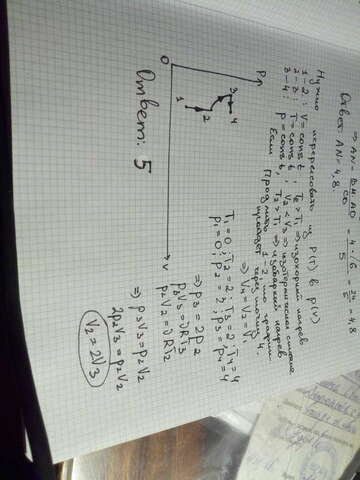 ⇒ AN = BH · AD / CD = 4 · √6 / 5 = 24/5 = 4,8
Ответ: AN = 4,8
Нужно перерисовать из P(T) в p(V)
1-2: V = const, T2 > T1 ⇒ изохорный нагрев
2-3: T = const; V2 < V3 ⇒ изотермическое
3-4: p = const, T2 > T1 ⇒ изобарный нагрев
Если продлить 1-2, то график
проходит через точку 4.
⇒ V4 = V2 = V1
T1 = 0; T2 = 2; T3 = 2; T4 = 4
p1 = 0; p2 = 2; p3 = p4 = 4
⇒ p3 = 2p2
p3V3 = νRT3
p2V2 = νRT2
⇒ p3V3 = p2V2
2p2V3 = p2V2
V2 = 2V3
P
O
1
2
3
4
V
Ответ: 5